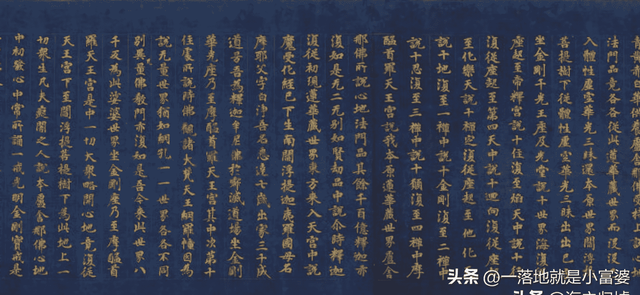 法門品竟各各從此蓮華藏世界而沒
入體性虛空華光三昧還本原世界閻浮
菩提樹下從體性虛空華光三昧出出已
坐金剛千光王座及光堂說十世界海復
座起至帝釋宮說十住復至焰天中說十
復從座起至第四天中說十迴向復從座
至化樂天說十禪定復從座起至他化
說十地復至一禪中說十金剛復至二禪中
說十忍復至三禪中說十願復至四禪中摩
醯首羅天王宮說我本原蓮華藏世界盧舍
那佛所說心地法門品其餘千百億釋迦亦
復如是無二無別如賢劫品中說爾時釋迦
復從初現蓮華藏世界東方來入天宮中說
魔受化經已下生南閻浮提迦夷羅國母名
摩耶父字白淨吾名悉達七歲出家三十成
道号吾為釋迦牟尼佛於寂滅道場坐金剛
華光座乃至摩醯首羅天王宮其中次第十
住處所說時佛觀諸大梵天王網羅幢因為
說无量世界猶如網孔一一世界各各不同
別異无量佛教門亦復如是吾今來此世界八
千反為此娑婆世界坐金剛座乃至摩醯首
羅天王宮是中一切大眾略開心地竟復從
天王宮下至閻浮提菩提樹下為此地上一
切眾生凡夫癡闇之人說本盧舍那佛心地
中初發心中常所誦一戒光明金剛寶戒是
头条 @一落地就是小富婆